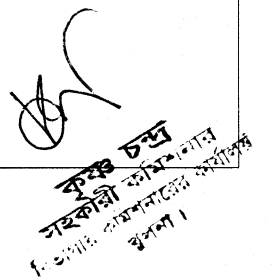 কৃষ্ণ চন্দ্র
সহকারী কমিশনার
বিভাগীয় কমিশনারের কার্যালয়
খুলনা।